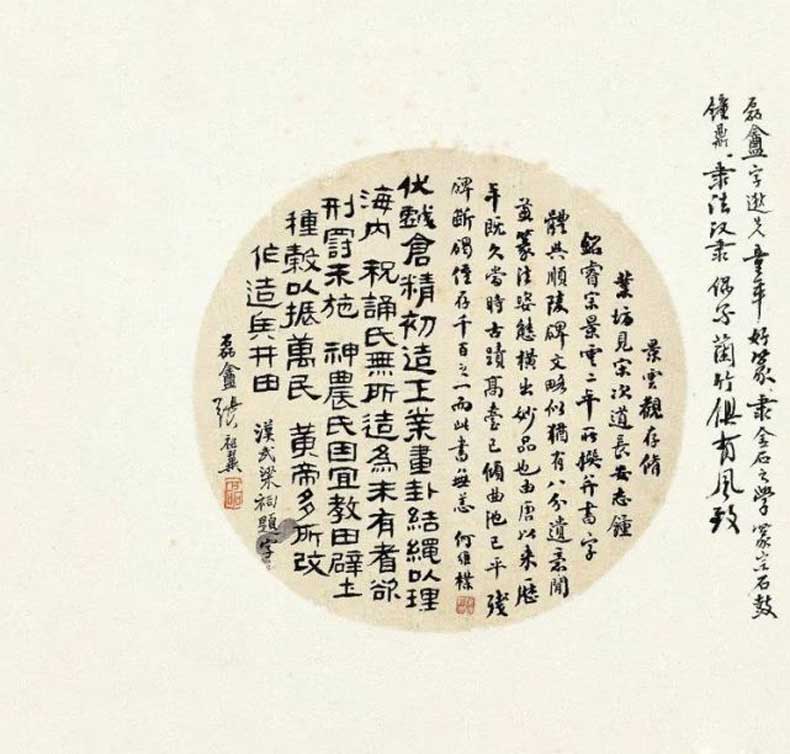 磊盦字逖先童年好篆隶金石之學篆宗石鼓
鐘鼎隶法汉隶偶写蘭竹俱有風致
景雲觀存脩
業坊見宋次道長安志鐘
銘睿宗景雲二年所撰并書字
體與順陵碑文略似猶有八分遺意間
蓋篆法姿態橫出妙品也由唐以来歷
年既久當時古蹟高臺已傾曲池已平殘
碑斷碣僅存千百之一而此書無恙 何維樸
伏戲倉精初造王業畫卦結繩以理
海内 祝誦氏無所造為未有耆欲
刑罰未施 神農氏因宜教田辟土
種穀以振萬民 黄帝多所改
作造兵井田
漢武梁祠題字
磊盦張祖翼